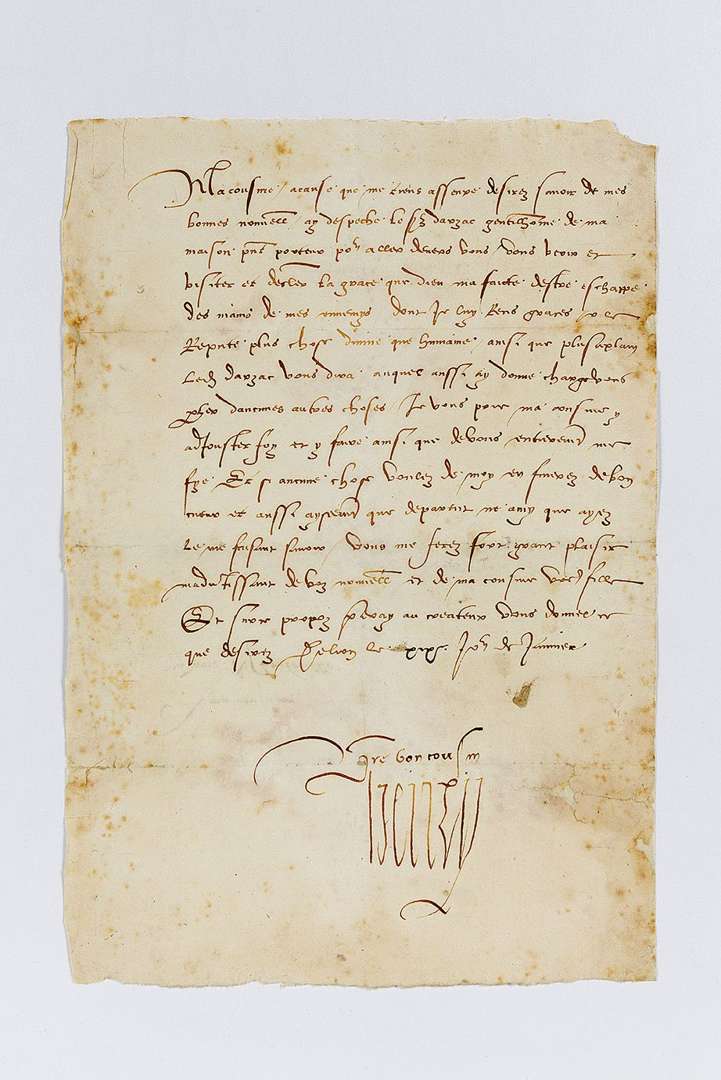 Ma cousine / acause que me tiens asseure desirez savoir de mes
bonnes nouvell ay despeche le Sr darzac gentilhome de ma
maison pnt porteur por aller devers vous / vous veoir et
visiter et decler la grace que dieu ma faicte destre eschappe
des mains de mes ennemys dont Je luy Rens graces
Repute plus chose divine que humaine ainsi que plusaplain
led darzac vous dira auquel aussi ay donne charge vous
daucunes autres choses Je vous prie ma cousine y
adJouster foy et y faire ainsi que de vous entierem me
fye Et si aucune chose voulez de moy en finerez de bon
cueur et aussi ayseem que de parent ne amy que ayez
le me faisant savoir / vous me ferez fort grant plaisir
madvertissant de voz nouvell et de ma cousine vre fille
Et sur ce propoz priray au createur vous donner ce
que desirez de lion le xixe Jor de Janvier
vre bon cousin
Henry